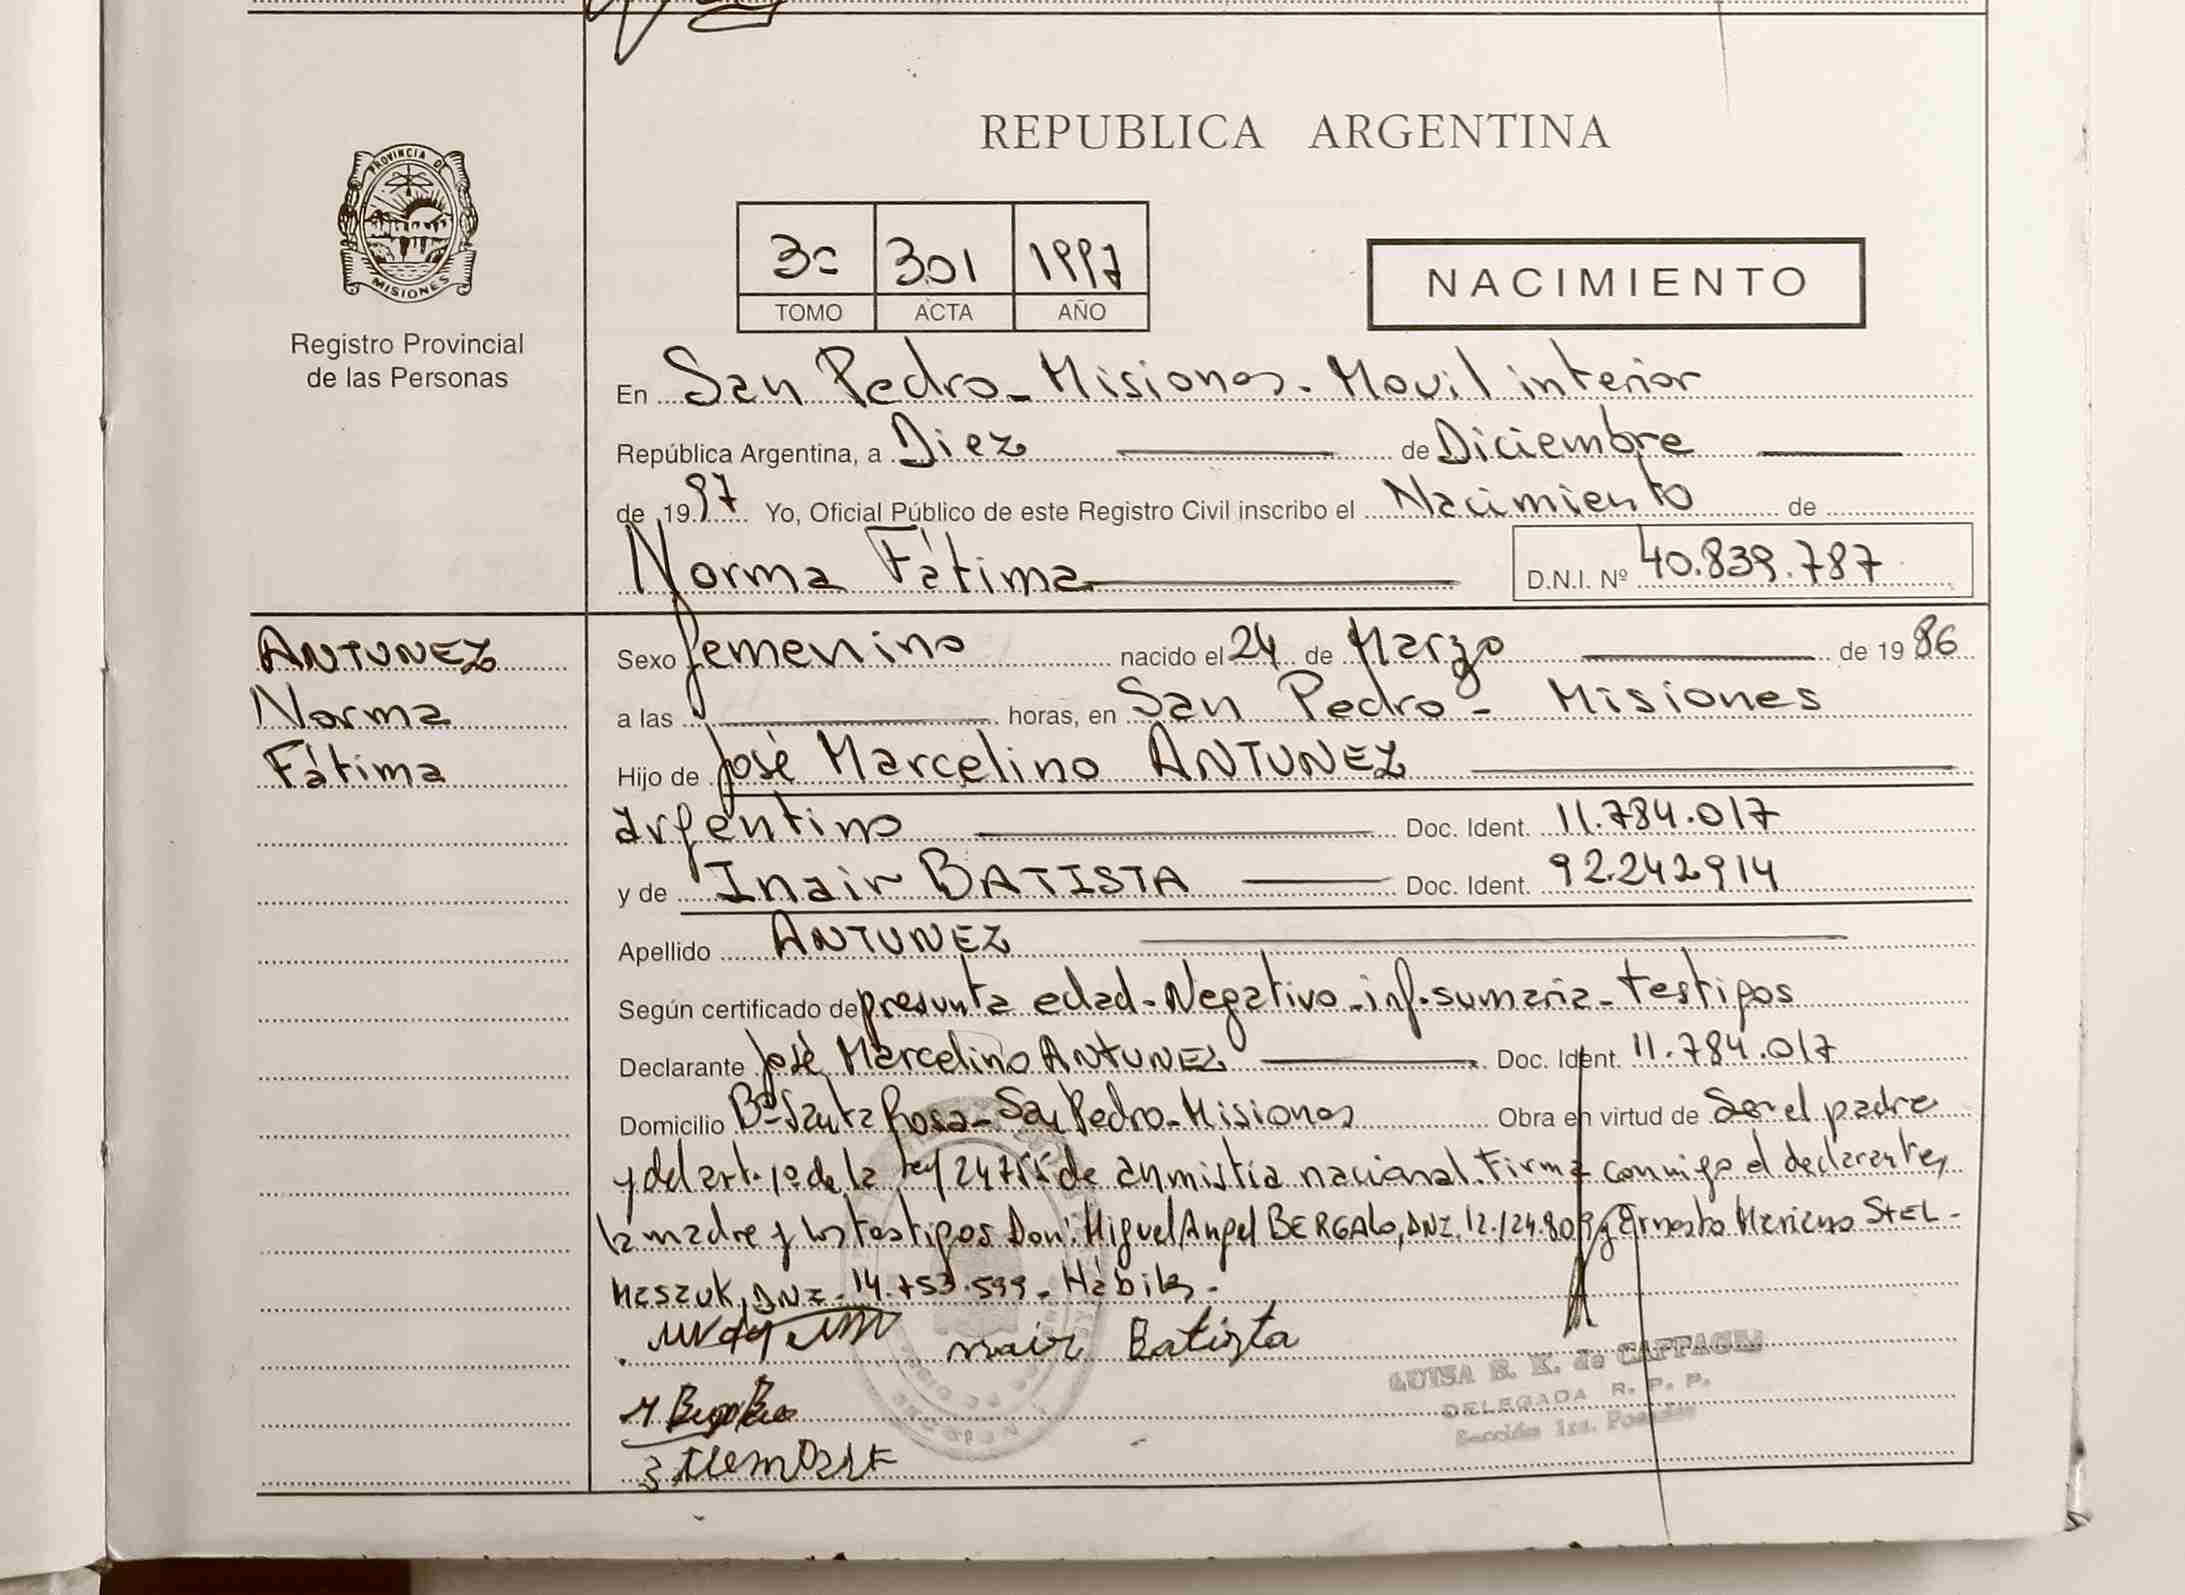 REPUBLICA ARGENTINA
PROVINCIA DE
MISIONES
Registro Provincial
de las Personas
3º 301 1997
TOMO ACTA AÑO
NACIMIENTO
En San Pedro - Misiones - Movil interior
República Argentina, a Diez de Diciembre
de 1997 Yo, Oficial Público de este Registro Civil inscribo el Nacimiento de
Norma Fátima D.N.I. Nº 40.839.787
ANTUNEZ
Norma
Fátima
Sexo femenino nacido el 24 de Marzo de 1986
a las horas, en San Pedro - Misiones
Hijo de José Marcelino ANTUNEZ
argentino Doc. Ident. 11.784.017
y de Inair BATISTA Doc. Ident. 92.242914
Apellido ANTUNEZ
Según certificado de presunta edad - Negativo - inf. sumaria - testigos
Declarante José Marcelino ANTUNEZ Doc. Ident. 11.784.017
Domicilio Bº Santa Rosa - San Pedro - Misiones Obra en virtud de Ser el padre
y del art. 1º de la ley 24755 de amnistia nacional. Firma conmigo el declarante,
la madre y los testigos Don: Miguel Angel BERGALO, DNI. 12.124.809 y Ernesto Mariano STEL-
MASZUK, DNI. 14.753.599. Hábiles.
Inair Batista
LUISA B. K. de
DELEGADA R. P. P.
Sección 1ra. Posadas